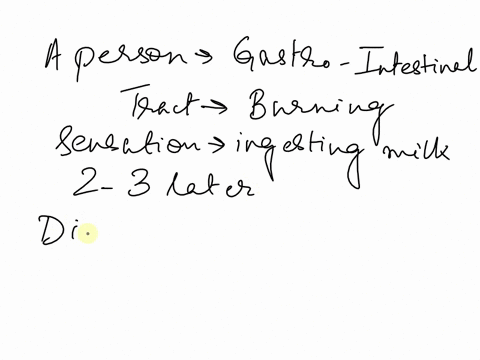 A person → Gastro - Intestinal
Tract → Burning
Sensation → ingesting milk
2-3 later
Di